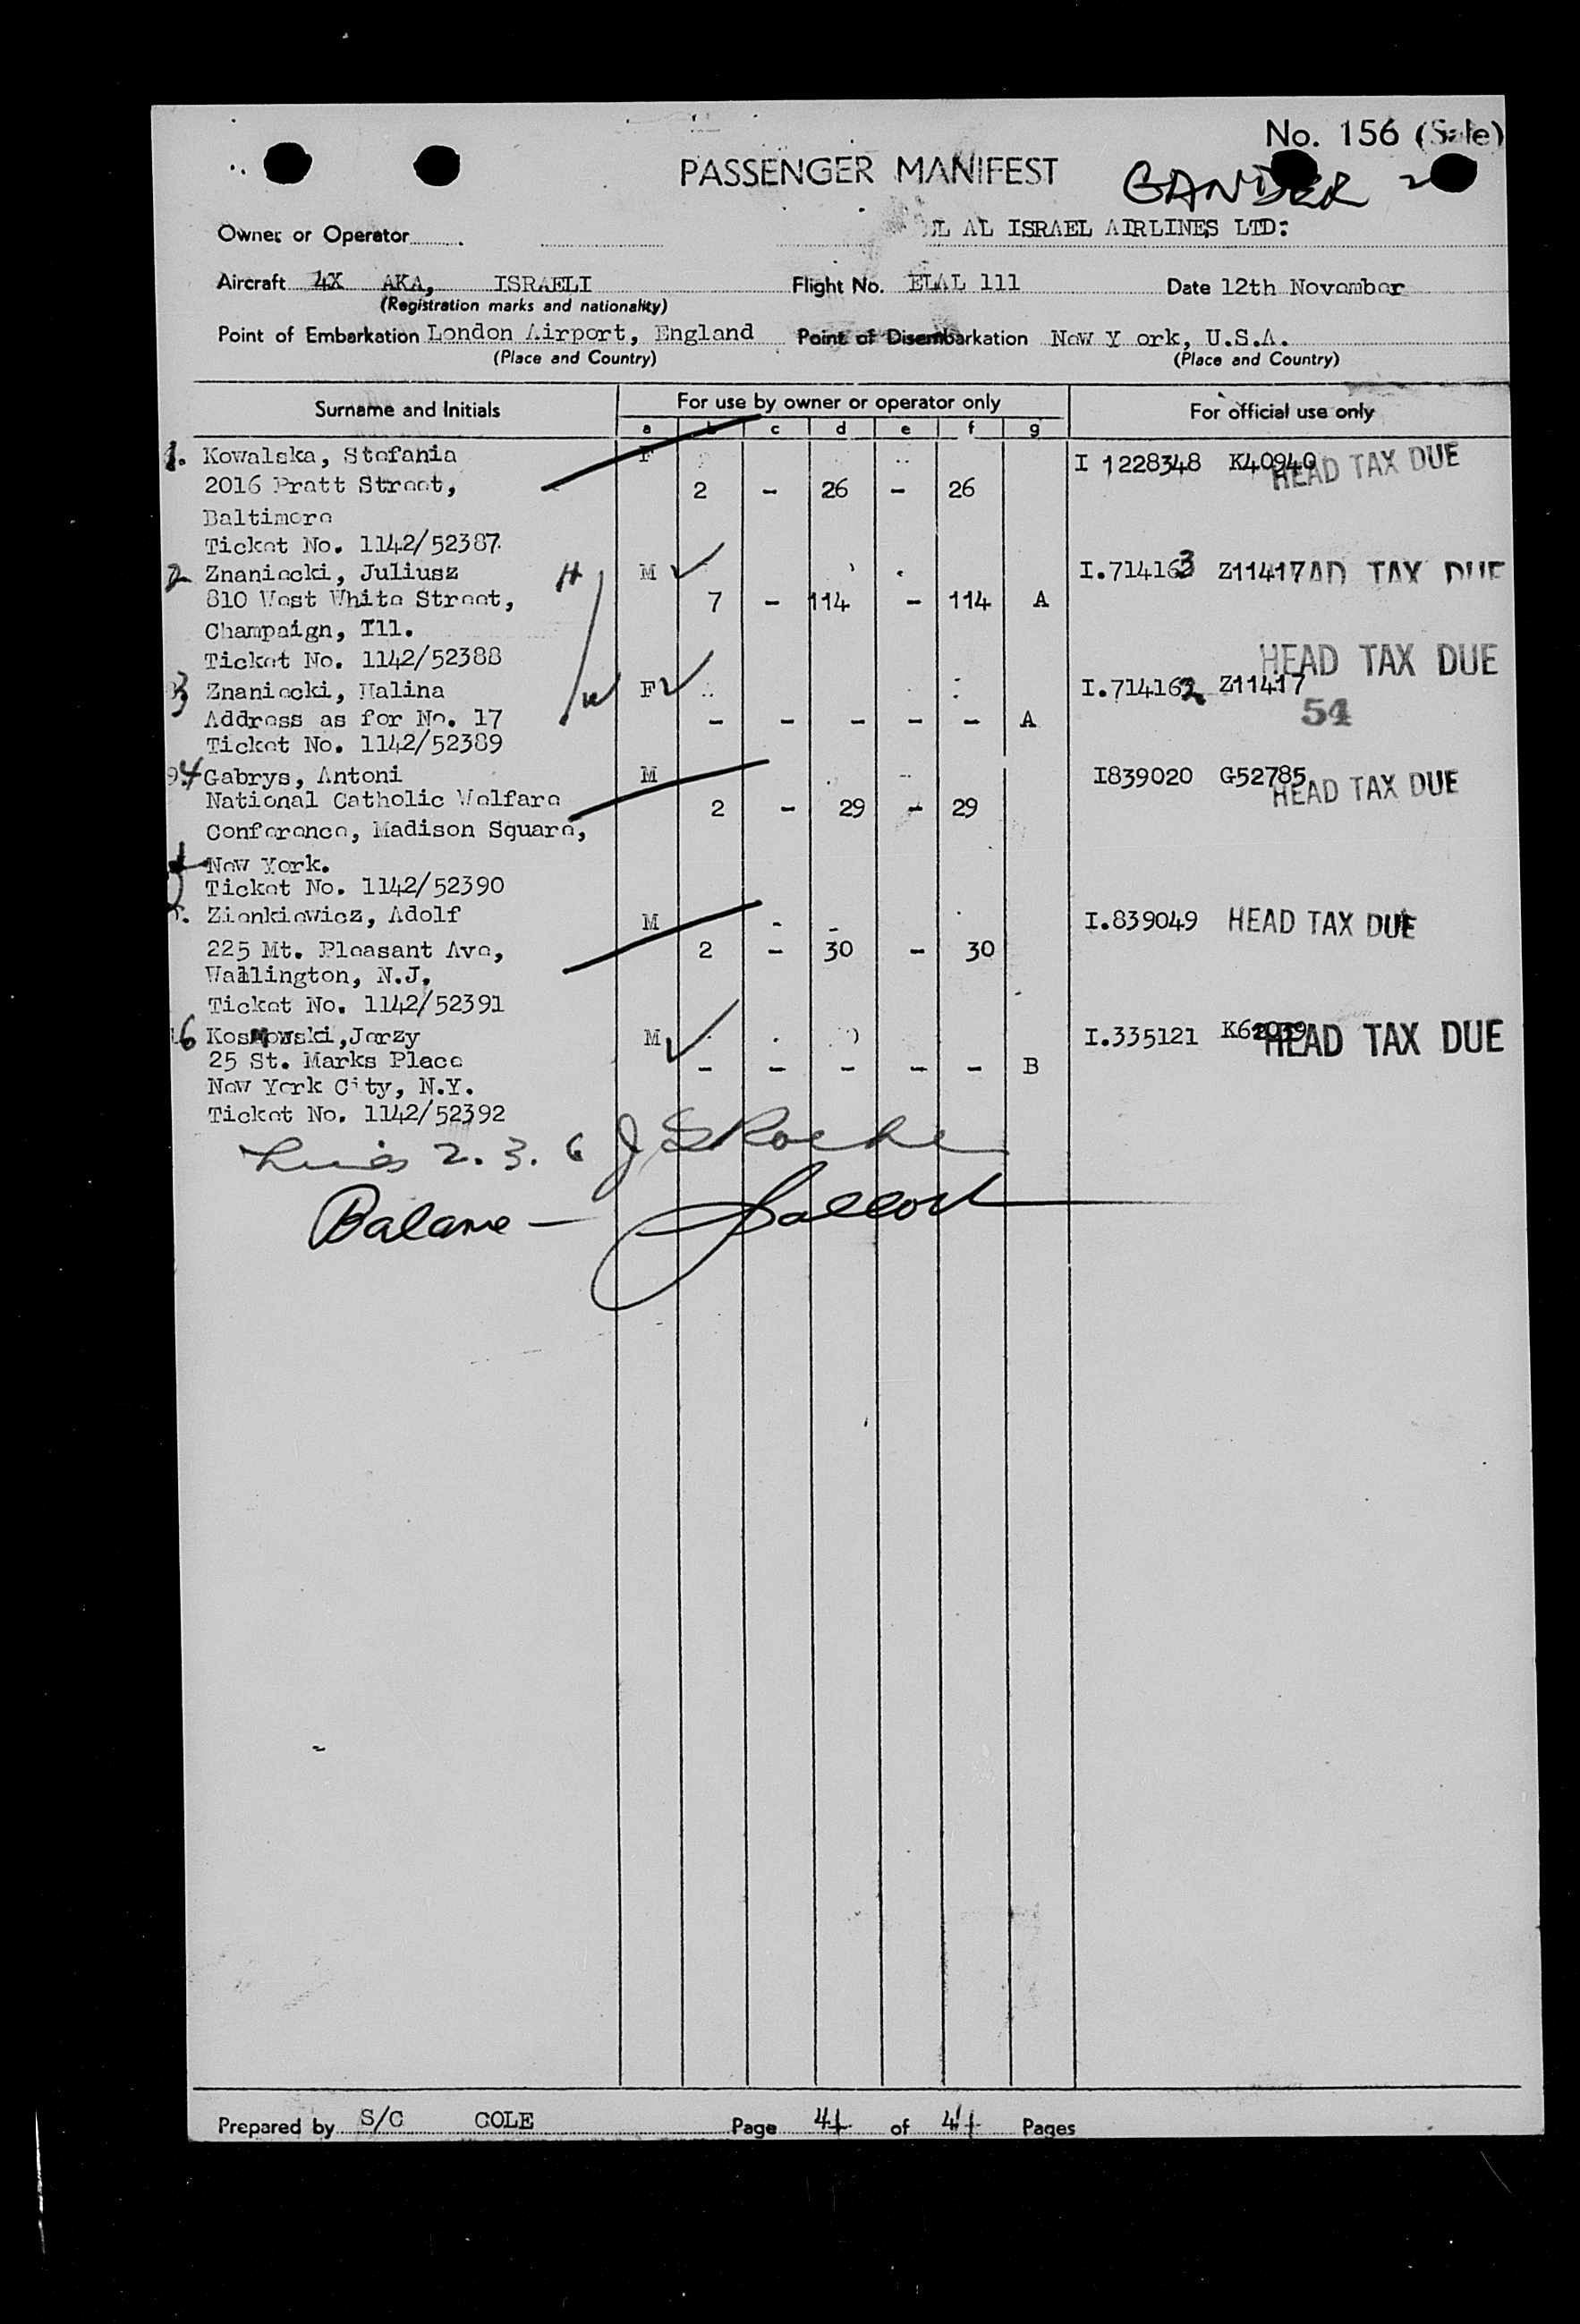 No. 156 (Sale)
PASSENGER MANIFEST
GANDER
Owner or Operator EL AL ISRAEL AIRLINES LTD:
Aircraft 4X AKA, ISRAELI Flight No. ELAL 111 Date 12th November
(Registration marks and nationality)
Point of Embarkation London Airport, England Point of Disembarkation New Y ork, U.S.A.
(Place and Country) (Place and Country)
Surname and Initials For use by owner or operator only For official use only
a b c d e f g
1. Kowalska, Stefania F I 1228348 K40940 HEAD TAX DUE
2016 Pratt Street, 2 - 26 - 26
Baltimore
Ticket No. 1142/52387
2 Znaniecki, Juliusz H M I.714163 Z11417 HEAD TAX DUE
810 West White Street, 7 - 114 - 114 A
Champaign, Ill.
Ticket No. 1142/52388 HEAD TAX DUE
3 Znaniecki, Halina W F I.714162 Z11417
Address as for No. 17 - - - - - A 54
Ticket No. 1142/52389
4 Gabrys, Antoni M I839020 G52785 HEAD TAX DUE
National Catholic Welfare 2 - 29 - 29
Conference, Madison Square,
New York.
Ticket No. 1142/52390
5. Zienkiewicz, Adolf M I.839049 HEAD TAX DUE
225 Mt. Pleasant Ave, 2 - 30 - 30
Wallington, N.J.
Ticket No. 1142/52391
6 Kosmowski, Jerzy M I.335121 HEAD TAX DUE
25 St. Marks Place - - - - - B
New York City, N.Y.
Ticket No. 1142/52392
Lines 2. 3. 6
Balance -
Prepared by S/C COLE Page 4 of 4 Pages